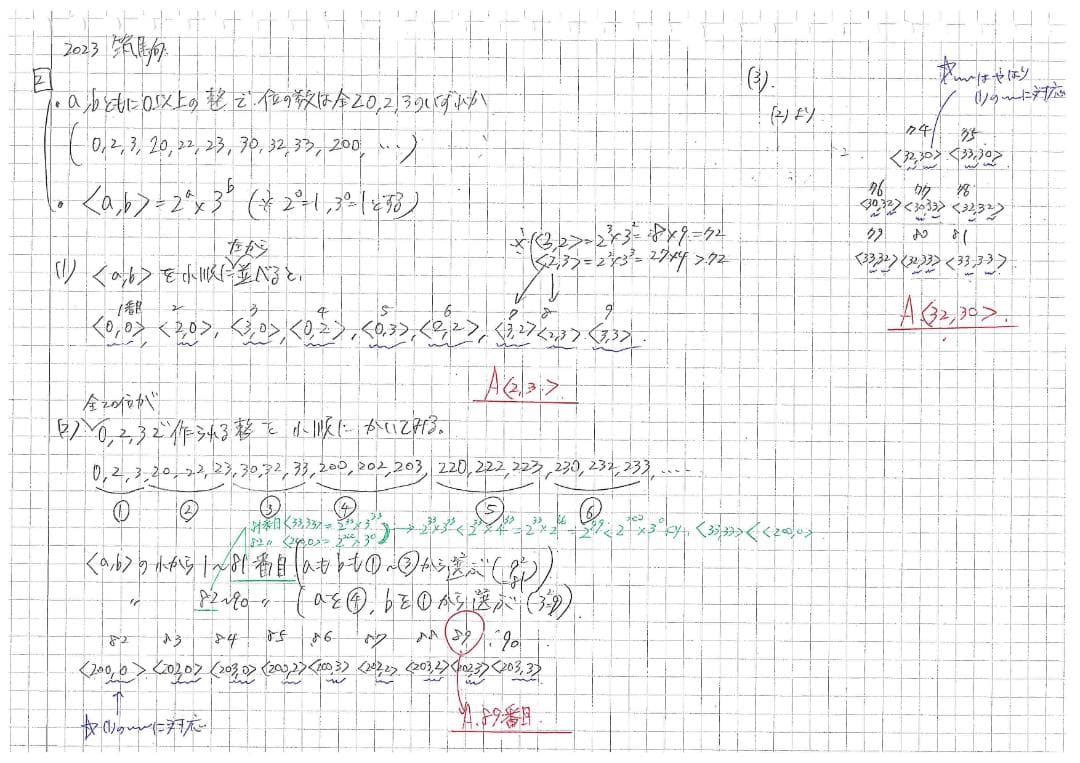 2023 筑駒
2
・a,bともに0以上の整で位の数は全て0,2,3のいずれか
(0,2,3,20,22,23,30,32,33,200,…)
・<a,b>=2^a×3^b (※2^0=1,3^0=1とする)
(1) <a,b>を小順に並べると、
左から
※(<3,2>=2^3×3^2=8×9=72
<2,3>=2^2×3^3=27×4>72
1番目 2 3 4 5 6 7 8 9
<0,0>,<2,0>,<3,0>,<0,2>,<0,3>,<0,2>,<3,2>,<2,3>,<3,3>
A<2,3>
全ての位が
(2) 0,2,3で作られる整を小順にかいてみる。
0,2,3,20,22,23,30,32,33,200,202,203,220,222,223,230,232,233,……
① ② ③ ④ ⑤ ⑥
81番目<33,33>=2^33×3^33
82〃<200,0>=2^200×3^0
→2^33×3^33<2^33×4^33=2^33×2^66=2^99<2^200×3^0より,<33,33><<200,0>
<a,b>の小から1~81番目(aもbも①~③から選ぶ(9^2=81))
〃 82~90〃(aを④,bを①から選ぶ(3^2=9))
82 83 84 85 86 87 88 89 90
<200,0><202,0><203,0><200,2><200,3><202,2><203,2><202,3><203,3>
☆(1)の〰に対応
A.89番目
(3).
(2)より
☆〰はやはり
(1)の〰に対応
74 75
<32,30><33,30>
76 77 78
<30,32><30,33><32,32>
79 80 81
<33,32><32,33><33,33>
A<32,30>.